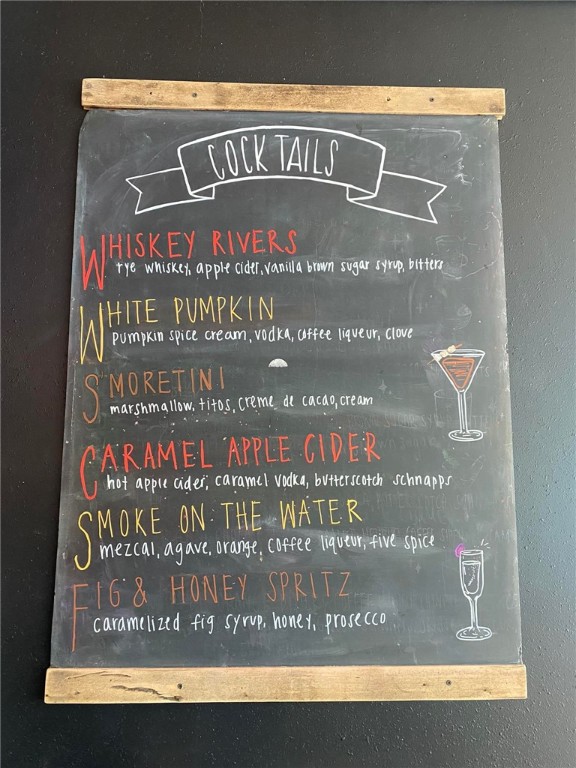 COCKTAILS
WHISKEY RIVERS
rye whiskey, apple cider, vanilla brown sugar syrup, bitters
WHITE PUMPKIN
pumpkin spice cream, vodka, coffee liqueur, clove
S'MORETINI
marshmallow, titos, crème de cacao, cream
CARAMEL APPLE CIDER
hot apple cider, caramel vodka, butterscotch schnapps
SMOKE ON THE WATER
mezcal, agave, orange, coffee liqueur, five spice
FIG & HONEY SPRITZ
caramelized fig syrup, honey, prosecco